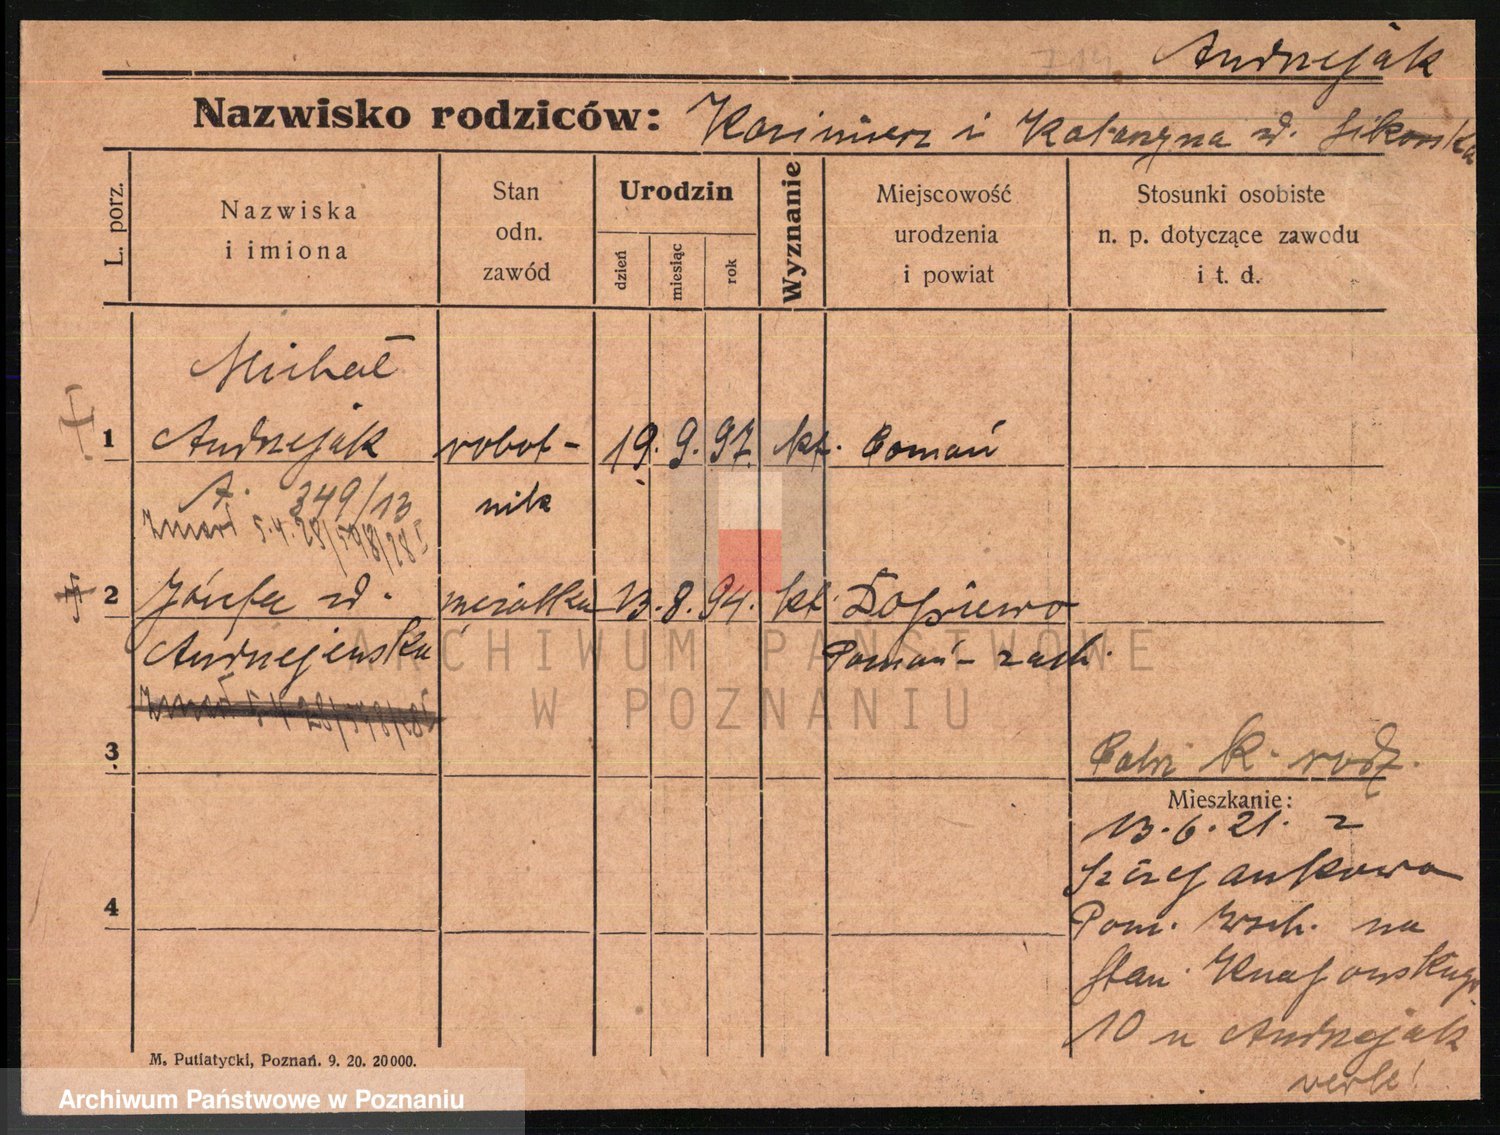 Andrzejak
Nazwisko rodziców: Kazimierz i Katarzyna zd. Sikorska
L. porz.
Nazwiska
i imiona
Stan
odn.
zawód
Urodzin
dzień
miesiąc
rok
Wyznanie
Miejscowość
urodzenia
i powiat
Stosunki osobiste
n. p. dotyczące zawodu
i t. d.
Michał
1 Andrzejak robot- 19. 9. 97. kt. Poznań
A. 349/13 nik
Zmarł 5.4.28/598/28
2 Józefa zd. mężatka 13. 8. 94. kt. Dopiewo
Andrzejewska Poznań-zach.
Zmarł 5.4.28/598/28
3
Patrz k. rodz.
Mieszkanie:
13.6.21. z
Szczepankowa
4
Pozn. wsch. na
Stan. Knapowskiego
10 u Andrzejak
M. Putiatycki, Poznań. 9. 20. 20000.
ARCHIWUM PAŃSTWOWE
W POZNANIU
Archiwum Państwowe w Poznaniu